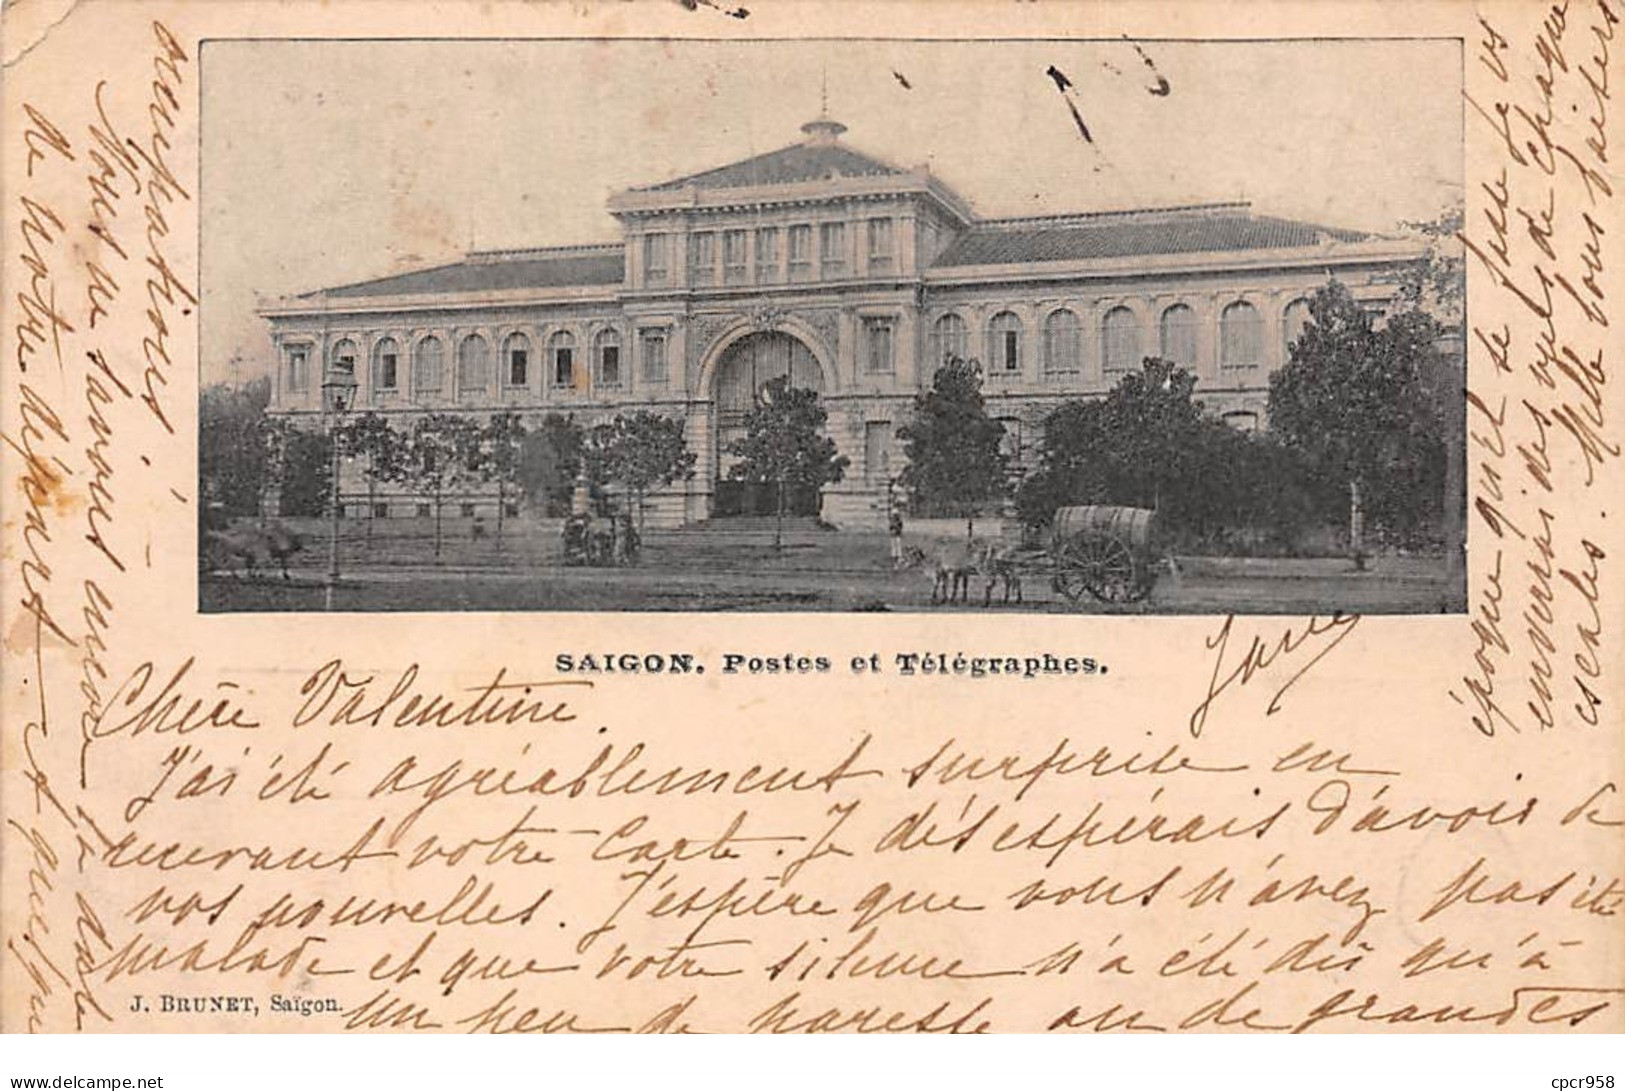 SAIGON. Postes et Télégraphes.
Chère Valentine
J'ai été agréablement surprise en
recevant votre Carte. Je désespérais d'avoir de
vos nouvelles. J'espère que vous n'avez pas été
malade et que votre silence n'a été dû qu'à
un peu de paresse ou de grandes
J. BRUNET, Saïgon.
occupations!
Nous ne savons encore la date
de notre départ. A quelque
époque qu'il se fasse je vs
enverrai des vues de chaque
escales. Mille bons baisers
www.delcampe.net
cpcr958